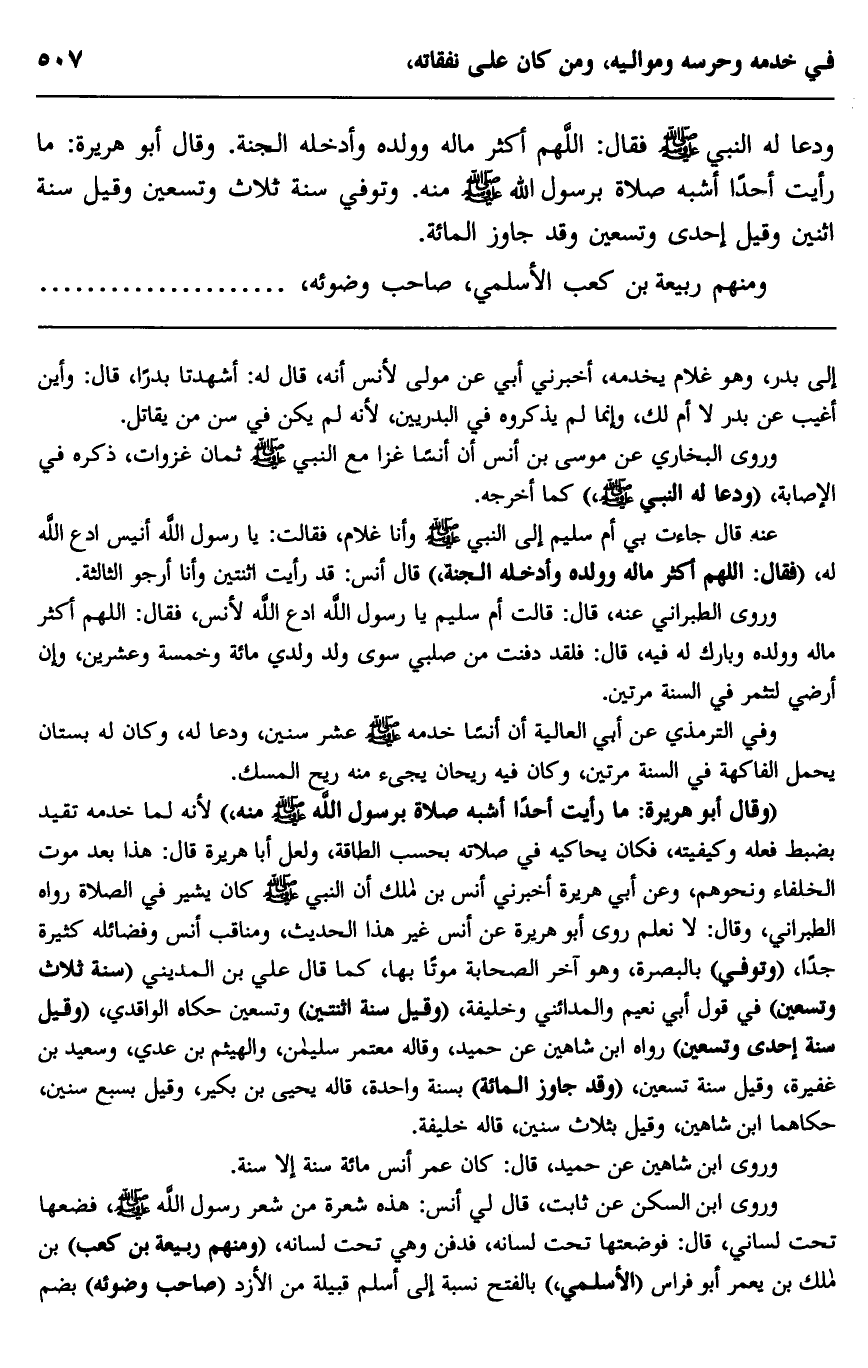 في خدمه وحرسه ومواليه، ومن كان على نفقاته، ٥٠٧
ودعا له النبي ﷺ فقال: اللَّهم أكثر ماله وولده وأدخله الجنة. وقال أبو هريرة: ما
رأيت أحدًا أشبه صلاة برسول الله ﷺ منه. وتوفي سنة ثلاث وتسعين وقيل سنة
اثنين وقيل إحدى وتسعين وقد جاوز المائة.
ومنهم ربيعة بن كعب الأسلمي، صاحب وضوئه، .....................
إلى بدر، وهو غلام يخدمه، أخبرني أبي عن مولى لأنس أنه، قال له: أشهدتا بدرًا، قال: وأين
أغيب عن بدر لا أم لك، وإنما لم يذكروه في البدريين، لأنه لم يكن في سن من يقاتل.
وروى البخاري عن موسى بن أنس أن أنسًا غزا مع النبي ﷺ ثمان غزوات، ذكره في
الإصابة، (ودعا له النبي ﷺ،) كما أخرجه.
عنه قال جاءت بي أم سليم إلى النبي ﷺ وأنا غلام، فقالت: يا رسول اللَّه أنيس ادع اللَّه
له، (فقال: اللهم أكثر ماله وولده وأدخله الجنة،) قال أنس: قد رأيت اثنتين وأنا أرجو الثالثة.
وروى الطبراني عنه، قال: قالت أم سليم يا رسول اللَّه ادع اللَّه لأنس، فقال: اللهم أكثر
ماله وولده وبارك له فيه، قال: فلقد دفنت من صلبي سوى ولد ولدي مائة وخمسة وعشرين، وإن
أرضي لتثمر في السنة مرتين.
وفي الترمذي عن أبي العالية أن أنسًا خدمه ﷺ عشر سنين، ودعا له، وكان له بستان
يحمل الفاكهة في السنة مرتين، وكان فيه ريحان يجيء منه ريح المسك.
(وقال أبو هريرة: ما رأيت أحدًا أشبه صلاة برسول اللَّه ﷺ منه،) لأنه لما خدمه تقيد
بضبط فعله وكيفيته، فكان يحاكيه في صلاته بحسب الطاقة، ولعل أبا هريرة قال: هذا بعد موت
الخلفاء ونحوهم، وعن أبي هريرة أخبرني أنس بن مٰلك أن النبي ﷺ كان يشير في الصلاة رواه
الطبراني، وقال: لا نعلم روى أبو هريرة عن أنس غير هذا الحديث، ومناقب أنس وفضائله كثيرة
جدًا، (وتوفي) بالبصرة، وهو آخر الصحابة موتًا بها، كما قال علي بن المديني (سنة ثلاث
وتسعين) في قول أبي نعيم والمدائني وخليفة، (وقيل سنة اثنتين) وتسعين حكاه الواقدي، (وقيل
سنة إحدى وتسعين) رواه ابن شاهين عن حميد، وقاله معتمر سليمٰن، والهيثم بن عدي، وسعيد بن
غفيرة، وقيل سنة تسعين، (وقد جاوز المائة) بسنة واحدة، قاله يحيى بن بكير، وقيل بسبع سنين،
حكاهما ابن شاهين، وقيل بثلاث سنين، قاله خليفة.
وروى ابن شاهين عن حميد، قال: كان عمر أنس مائة سنة إلا سنة.
وروى ابن السكن عن ثابت، قال لي أنس: هذه شعرة من شعر رسول اللَّه ﷺ، فضعها
تحت لساني، قال: فوضعتها تحت لسانه، فدفن وهي تحت لسانه، (ومنهم ربيعة بن كعب) بن
مٰلك بن يعمر أبو فراس (الأسلمي،) بالفتح نسبة إلى أسلم قبيلة من الأزد (صاحب وضوئه) بضم